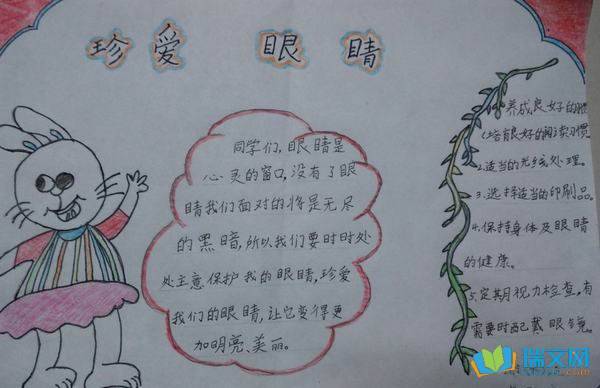 珍爱 眼睛
同学们,眼睛是
心灵的窗口,没有了眼
睛我们面对的将是无尽
的黑暗,所以我们要时时处
处主意保护我的眼睛,珍爱
我们的眼睛,让它变得更
加明亮、美丽。
养成良好的
(培良好的阅读习惯
2.适当的光线处理。
3.选择适当的印刷品。
4.保持身体及眼睛
的健康。
5.定期视力检查,有
需要时配戴眼镜。
瑞文网